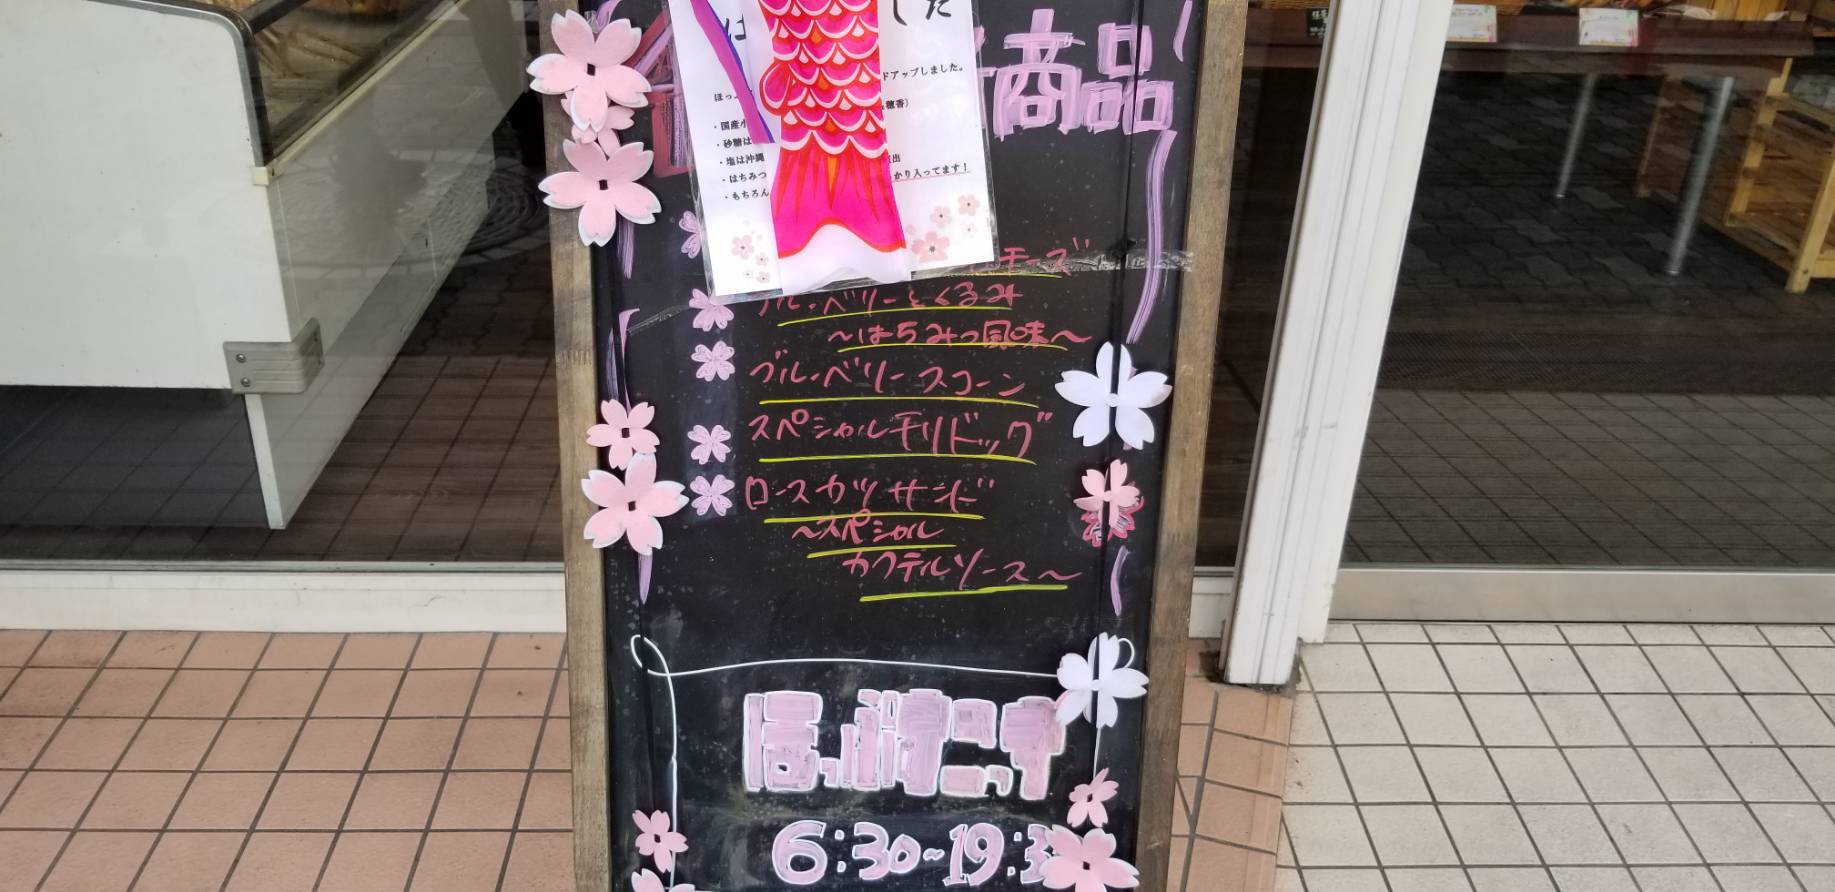 した
は
商品
ドアップしました。
ほっ
穂香）
・国産小
・砂糖は
・塩は沖縄
出
・はちみつ
かり入ってます！
・もちろん
チーズ
ブルーベリーとくるみ
～はちみつ風味～
ブルーベリースコーン
スペシャルチリドッグ
ロースカツサンド
～スペシャル
カクテルソース～
6:30~19:3